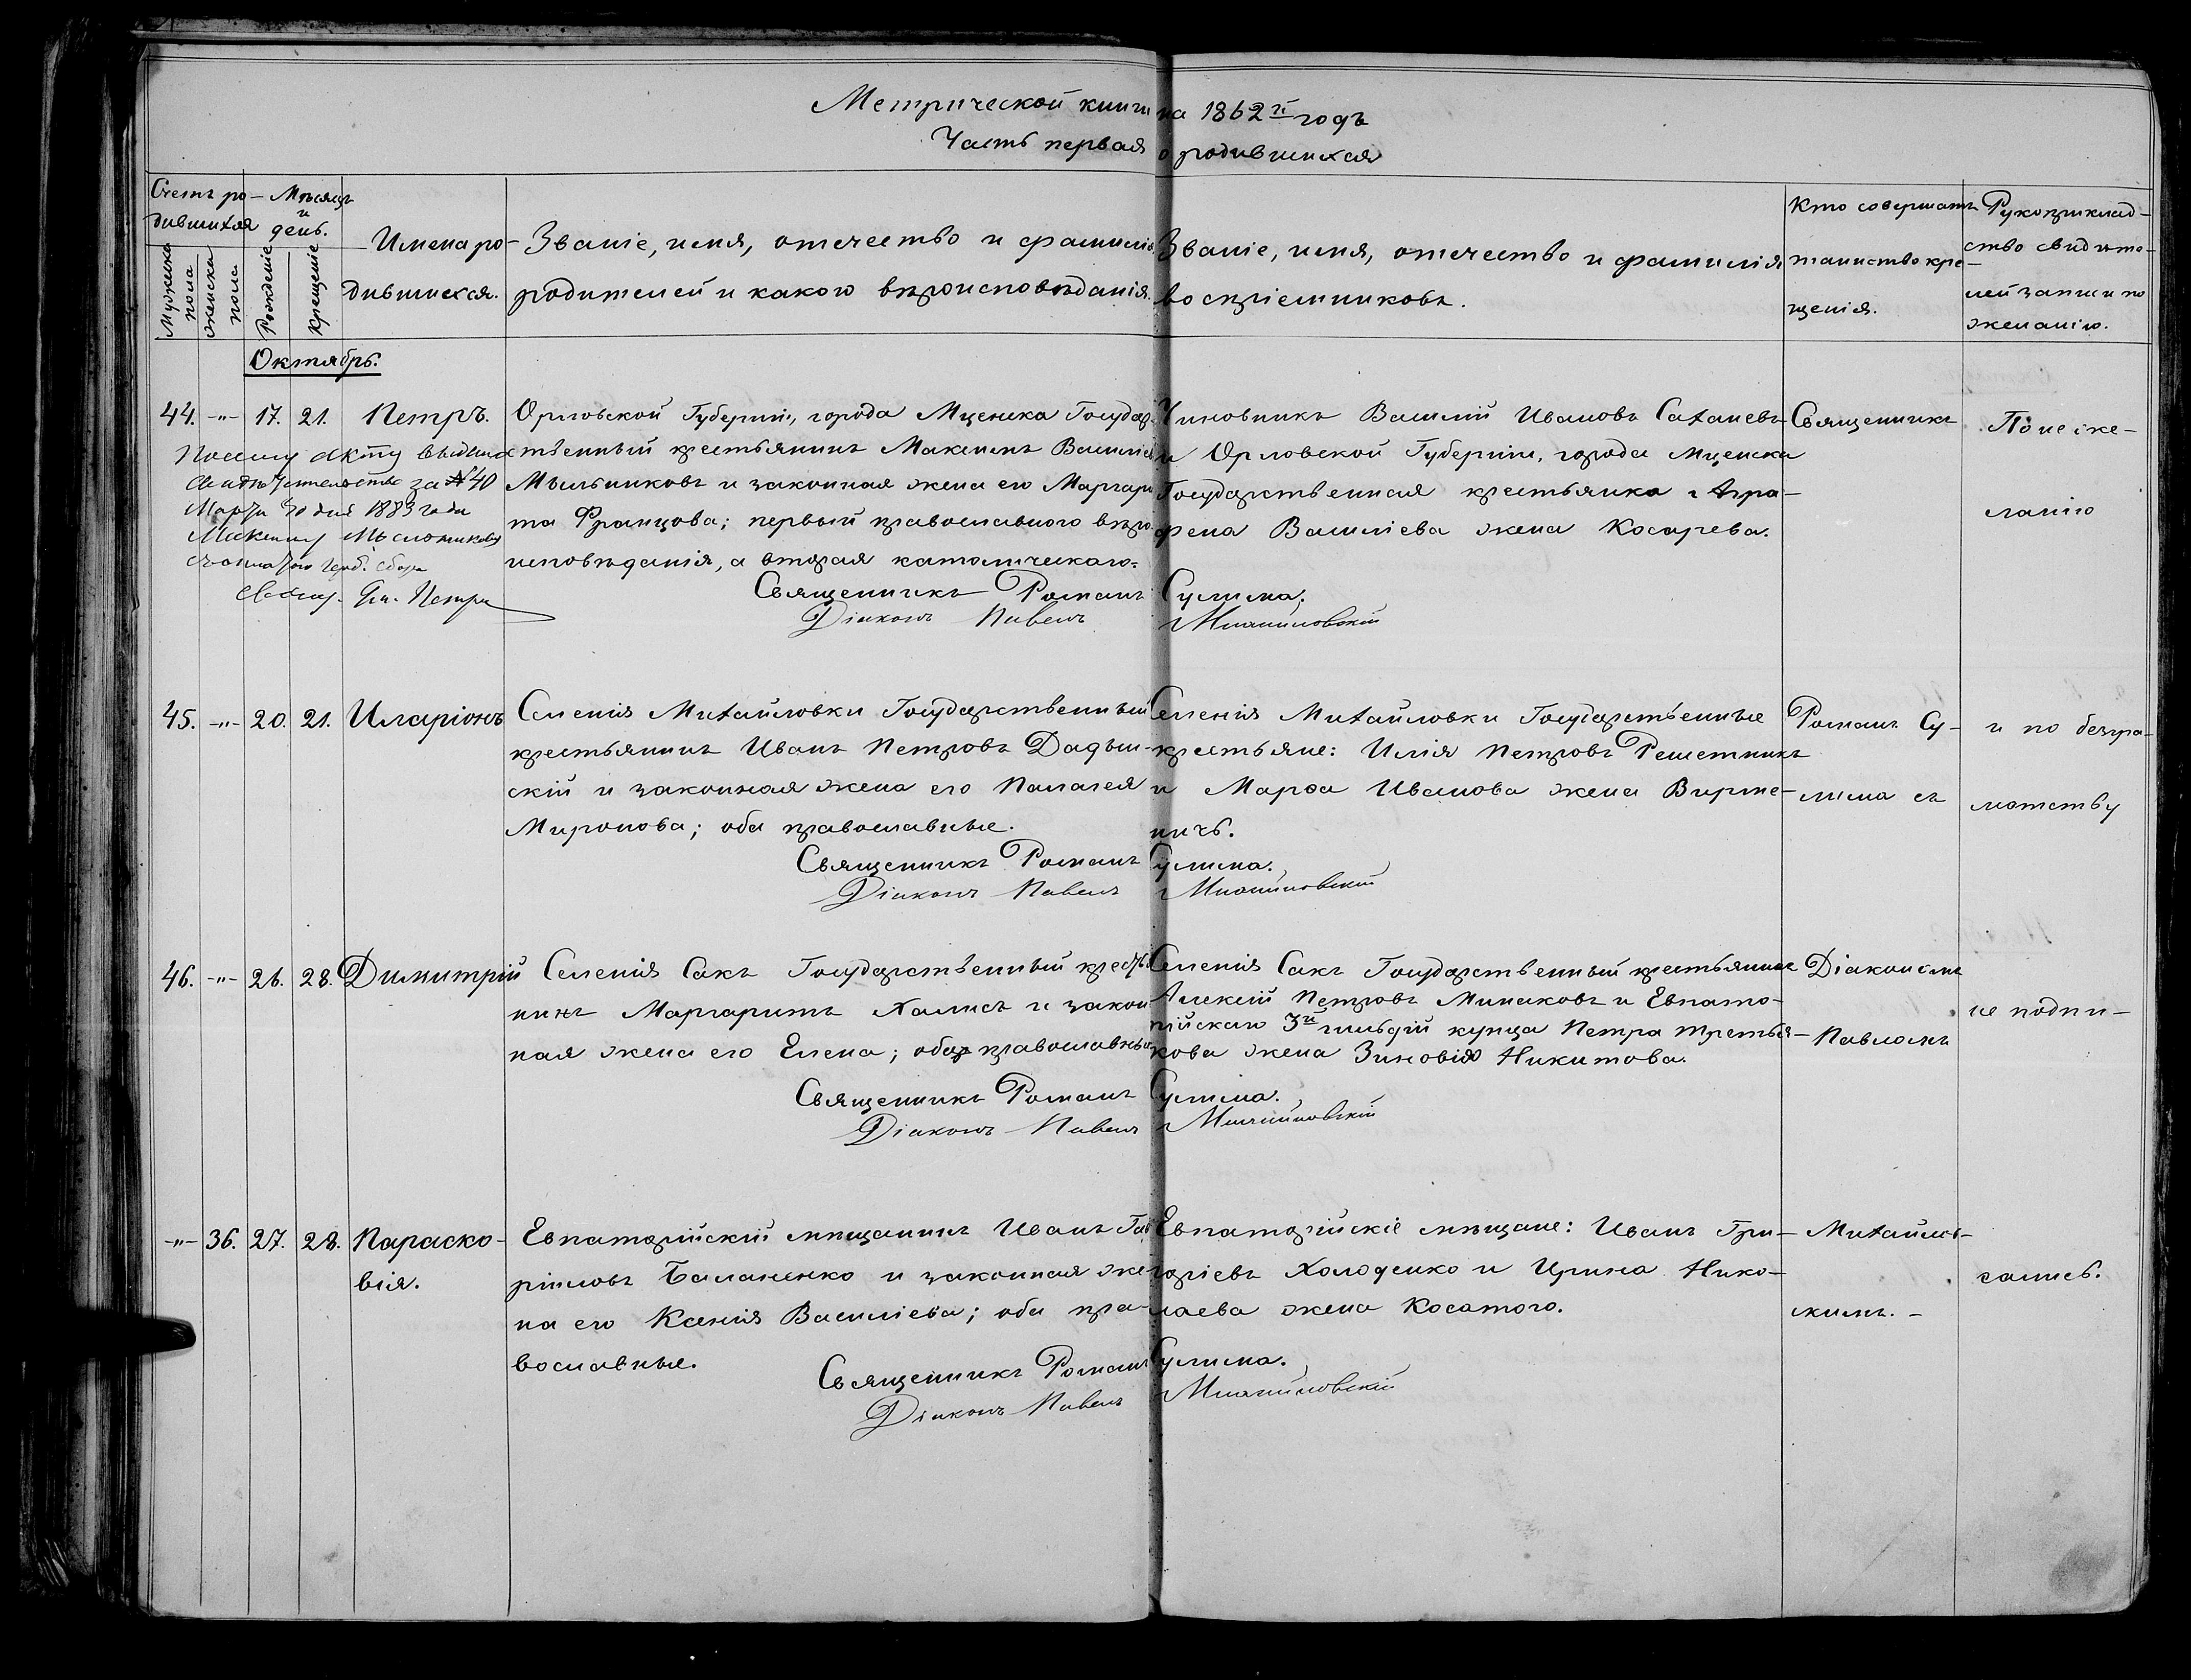 Метрической книги на 1862й годъ
Часть первая о родившихся
Счетъ ро-
дившихся
Мужеска
пола
женска
пола
Мѣсяцъ
и
день.
Рожденіе
Крещеніе
Имена ро-
дившихся.
Званіе, имя, отечество и фамилія
родителей и какого вѣроисповѣданія.
Званіе, имя, отечество и фамилія
воспріемниковъ.
Кто совершалъ
таинство кре-
щенія.
Рукоприклад-
ство свидѣте-
лей записи по
желанію.
Октябрь.
44. -"- 17. 21. Петръ.
Орловской Губерніи, города Мценска Государ-
ственный крестьянинъ Максимъ Василіевъ
Мыльниковъ и законная жена его Маргари
та Францова; первый православнаго вѣро-
исповѣданія, а вторая католическаго.
Чиновникъ Василій Ивановъ Саханевъ
и Орловской Губерніи, города Мценска
Государственная крестьянка Агра-
фена Василіева жена Косарева.
По сему акту выдано
свидѣтельство за № 40
Марта 30 дня 1883 года
Максиму Мыльникову
герб. сбора
Петръ
Священникъ Романъ Сулима.
Діаконъ Павелъ
45. -"- 20. 21. Иларіонъ
Селенія Михайловки Государственный
крестьянинъ Иванъ Петровъ Дадын-
скій и законная жена его Палагея
Миронова; оба православные.
Селенія Михайловки Государственные
крестьяне: Илія Петровъ Решетникъ
и Марѳа Иванова жена Вирме-
ничъ.
Священникъ Романъ Сулима.
Діаконъ Павелъ
46. -"- 26. 28. Димитрій
Селенія Сакъ Государственный крестья
нинъ Маргаритъ Халисъ и закон
ная жена его Елена; оба православные
Селенія Сакъ Государственный крестьянинъ
Алексій Петровъ Минаковъ и Евпато-
рійскаго 3й гильдіи купца Петра Третья-
кова жена Зиновія Никитова.
Священникъ Романъ Сулима.
Діаконъ Павелъ
-"- 36. 27. 28. Параско-
вія.
Евпаторійскій мѣщанинъ Иванъ Гав
ріиловъ Баланенко и законная же-
на его Ксенія Василіева; оба пра-
вославные.
Евпаторійскіе мѣщане: Иванъ Гри-
горіевъ Холоденко и Ирина Нико-
лаева жена Косатого.
Священникъ Романъ Сулима.
Діаконъ Павелъ
Священникъ
Романъ Су-
лима съ
Діакономъ
Павломъ
Михайлов-
скимъ. -
По неже-
ланію
и по безгра-
мотству
не подпи-
сались.